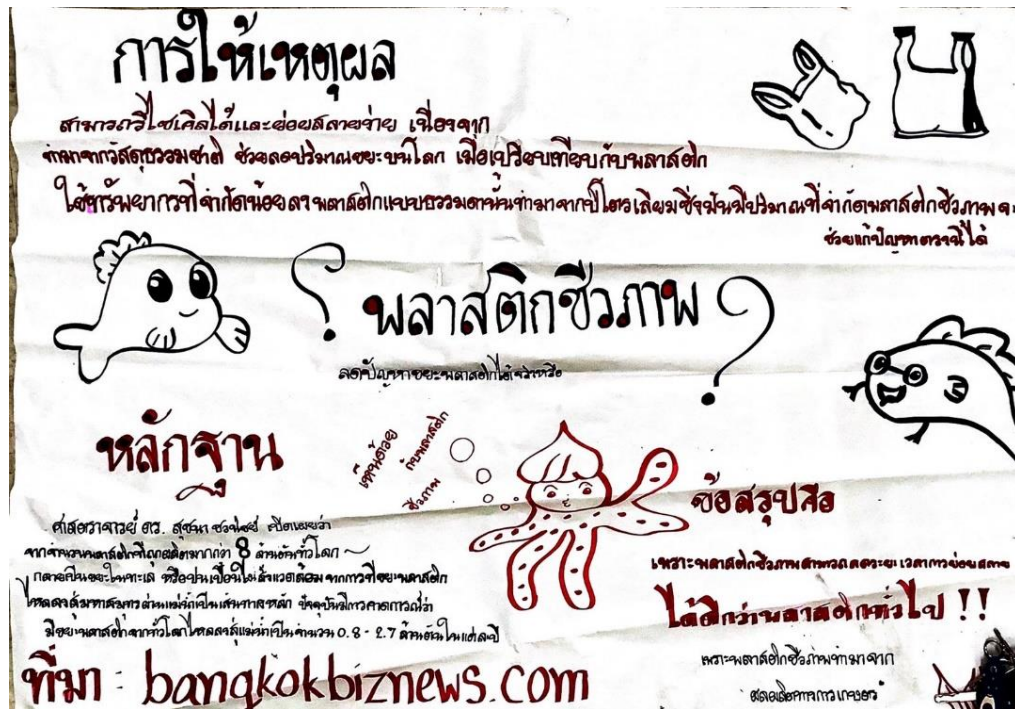 การให้เหตุผล
สามารถรีไซเคิลได้และย่อยสลายง่าย เนื่องจาก
ทำมาจากวัสดุธรรมชาติ ช่วยลดปริมาณขยะบนโลก เมื่อเปรียบเทียบกับพลาสติก
ใช้ทรัพยากรที่จำกัดน้อยลง พลาสติกแบบธรรมดานั้นทำมาจากปิโตรเลียมซึ่งมันมีปริมาณที่จำกัดพลาสติกชีวภาพจะ
ช่วยแก้ปัญหาตรงนี้ได้
? พลาสติกชีวภาพ ?
ลดปัญหาขยะพลาสติกได้จริงหรือ
หลักฐาน
เห็นด้วย
กับพลาสติก
ชีวภาพ
ศาสตราจารย์ ดร. สุชนา ชวนิชย์ เปิดเผยว่า
จากจำนวนพลาสติกที่ถูกผลิตมากกว่า 8 ล้านตันทั่วโลก ~
กลายเป็นขยะในทะเล หรือปนเปื้อนในสิ่งแวดล้อม จากการที่ขยะพลาสติก
ไหลลงสู่มหาสมุทรผ่านแม่น้ำเป็นเส้นทางหลัก ปัจจุบันมีการคาดการณ์ว่า
มีขยะพลาสติกจากทั่วโลกไหลลงสู่แม่น้ำเป็นจำนวน 0.8 - 2.7 ล้านตันในแต่ละปี
ที่มา : bangkokbiznews.com
ข้อสรุปคือ
เพราะพลาสติกชีวภาพสามารถลดระยะเวลาการย่อยสลาย
ได้ดีกว่าพลาสติกทั่วไป !!
เพราะพลาสติกชีวภาพทำมาจาก